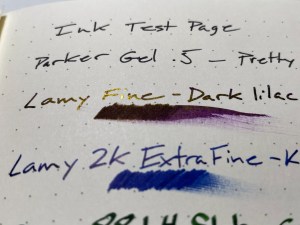 Ink Test Page
Parker Gel .5 — Pretty
Lamy Fine - Dark lilac
Lamy 2K Extra Fine - K